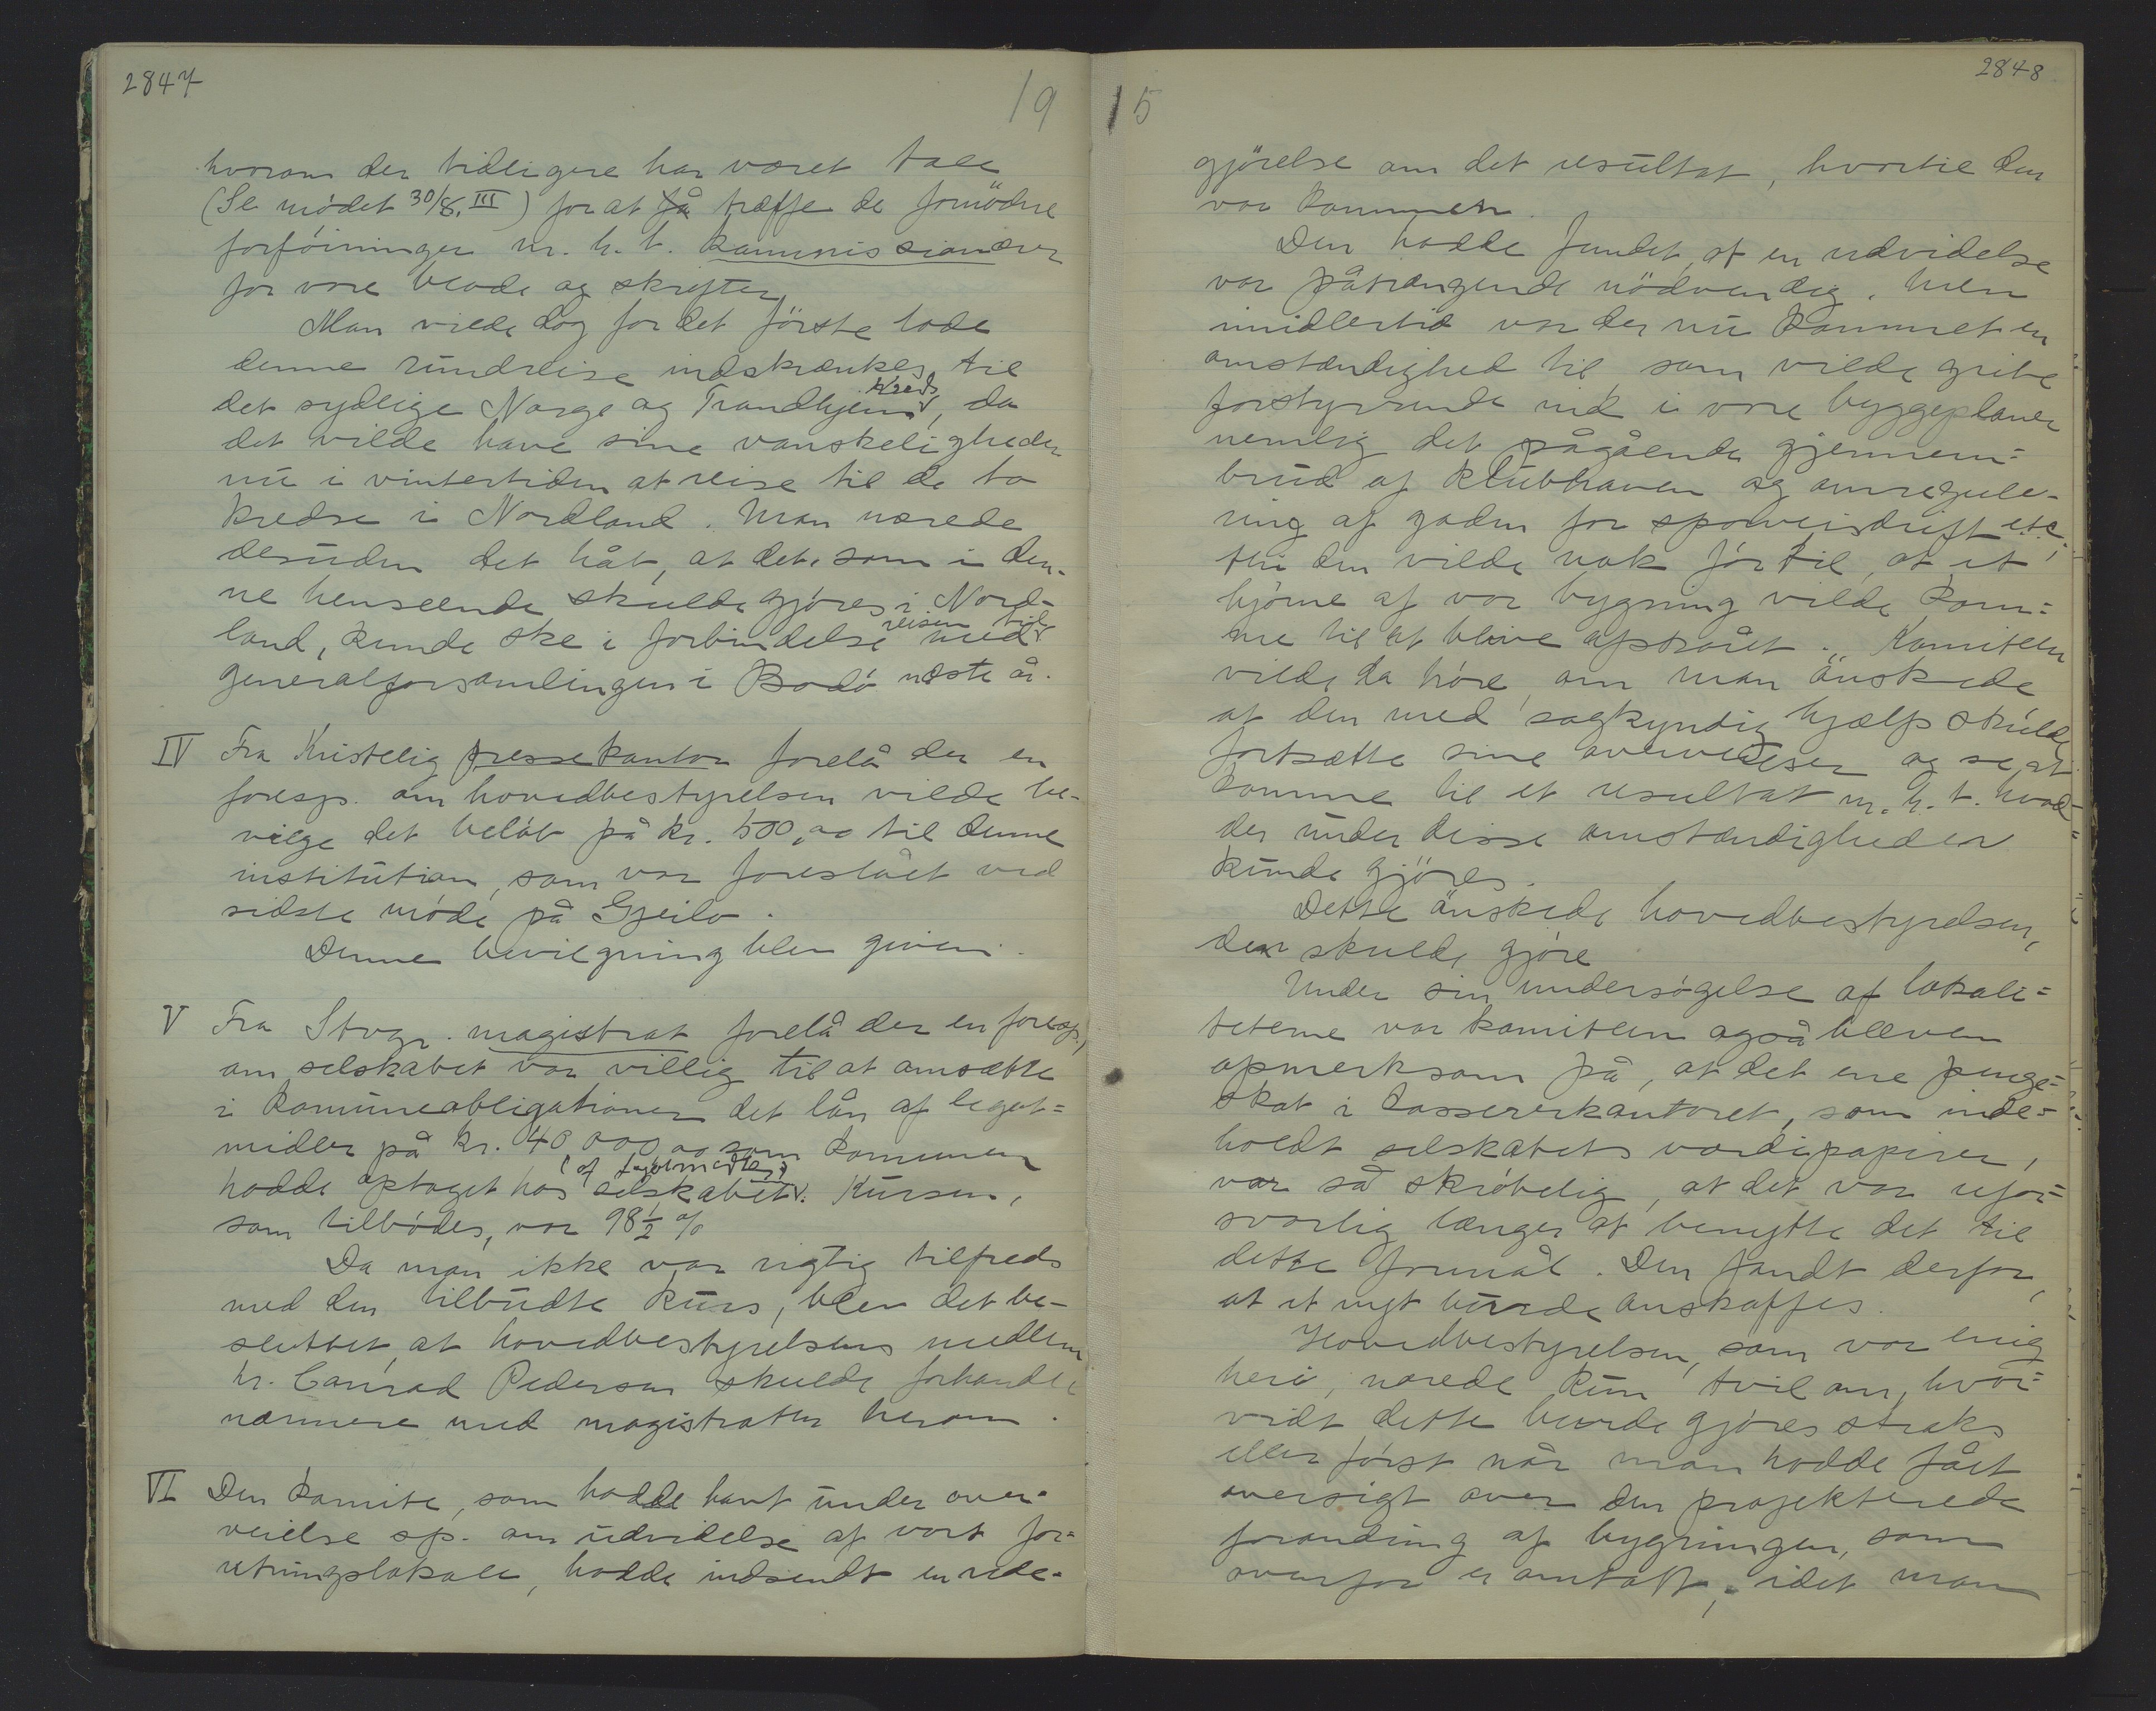 2847
19
hvorom der tidligere har været tale
(Se mödet 30/8. III) for at få træffe de fornödne
forföininger m. h. t. kommissionærer
for vore blade og skrifter.
Man vilde dog for det förste lade
denne rundreise indskrænkes til
det sydlige Norge og Trondhjems kreds, da
det vilde have sine vanskeligheder
nu i vintertiden at reise til de to
kredse i Nordland. Man nærede
desuden det håb, at det, som i den-
ne henseende skulde gjöres i Nord-
land, kunde ske i forbindelse med reisen til
generalforsamlingen i Bodö næste år.
IV Fra Kristelig pressekontor forelå der en
foresp. om hovedbestyrelsen vilde be-
vilge det belöb på kr. 500,00 til denne
institution, som var foreslået ved
sidste möde på Gjeilo.
Denne bevilgning blev given.
V Fra Stvgr. magistrat forelå der en foresp.,
om selskabet var villig til at omsætte
i kommuneobligationer det lån af legat=
midler på kr. 40 000,00 som kommunen
hadde optaget hos selskabet. Kursen,
som tilbödes, var 98 1/2 %
Da man ikke var rigtig tilfreds
med den tilbudte kurs, blev det be-
sluttet, at hovedbestyrelsens medlem
hr. Conrad Pedersen skulde forhandle
nærmere med magistraten herom.
VI Den komite, som hadde havt under over-
veielse sp. om udvidelse af vort for=
retningslokale, hadde indsendt en rede-
2848
15
gjörelse om det resultat, hvortil den
var kommen.
Den hadde fundet, at en udvidelse
var påtrængende nödvendig. Men
imidlertid var der nu kommet en
omstændighed til, som vilde gribe
forstyrrende ind i vore byggeplaner
nemlig det pågående gjennem=
brud af Klubhaven og omregule-
ring af gaden for sporveisdrift etc,
thi den vilde nok före til, at et
hjörne af vor bygning vilde kom=
me til at blive afskåret. Komiteen
vilde da höre, om man önskede
at den med sagkyndig hjælp skulde
fortsætte sine overveielser og se, at
komme til et resultat m. h. t. hvad
der under disse omstændigheder
kunde gjöres.
Dette önskede hovedbestyrelsen,
den skulde gjöre
Under sin undersögelse af lokali=
teterne var komiteen også bleven
opmerksom på, at det ene penge=
skab i kassererkontoret, som inde=
holdt selskabets værdipapirer,
var så skröbelig, at det var ufor=
svarlig længer at benytte det til
dette formål. Den fandt derfor,
at et nyt burde anskaffes.
Hovedbestyrelsen, som var enig
heri, nærede kun tvil om, hvor=
vidt dette burde gjöres straks
eller först når man hadde fået
oversigt over den projekterede
forandring af bygningen, som
ovenfor er omtalt, idet man